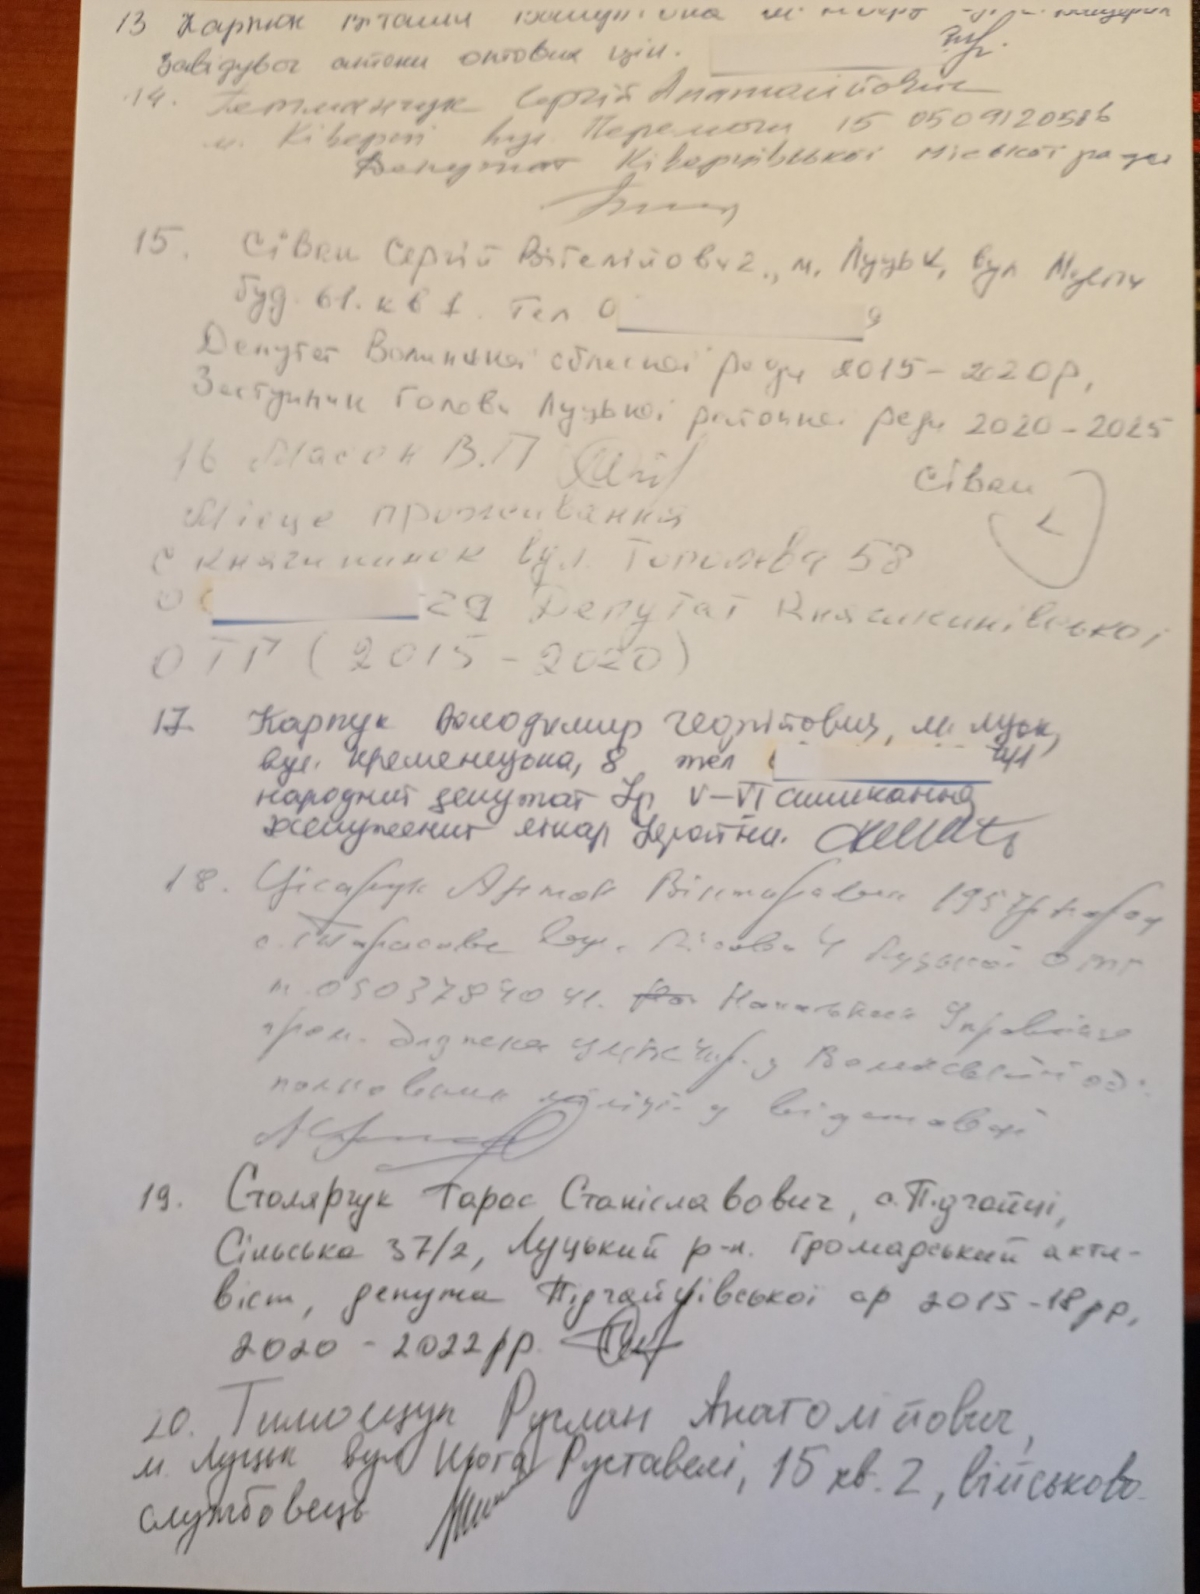 13 Карпюк
Завідувач аптеки оптових цін.
14. Гетманчук Сергій Анатолійович
м. Ківерці вул. Перемоги 15 0509120586
Депутат Ківерцівської міської ради
15. Сівак Сергій Віталійович, м. Луцьк, вул
буд. 61. кв 1. Тел 0 9
Депутат Волинської обласної ради 2015-2020р,
Заступник Голови Луцької районної ради 2020-2025
16 Масок В.П Сівак
Місце проживання
с Княгининок вул. Тополева 58
0 29 Депутат Княгининівської
ОТГ (2015-2020)
17. Карпук Володимир Георгійович, м. Луцьк,
вул. Кременецька, 8 тел
народний депутат Укр V-VI скликання
Заслужений лікар України.
18. Цісарук Антон Вікторович 1957р народ
с. Тарасове вул. Лісова 4 Луцької ОТГ
т. 0503784041. Начальник Управління
гром. безпеки у Волинській об.
полковник міліції у відставці
19. Столярчук Тарас Станіславович, с. Підгайці,
Сільська 37/2, Луцький р-н. Громадський акти-
віст, депутат Підгайцівської ср 2015-18рр,
2020-2022рр.
20. Тимощук Руслан Анатолійович,
м. Луцьк вул Шота Руставелі, 15 кв. 2, військово
службовець